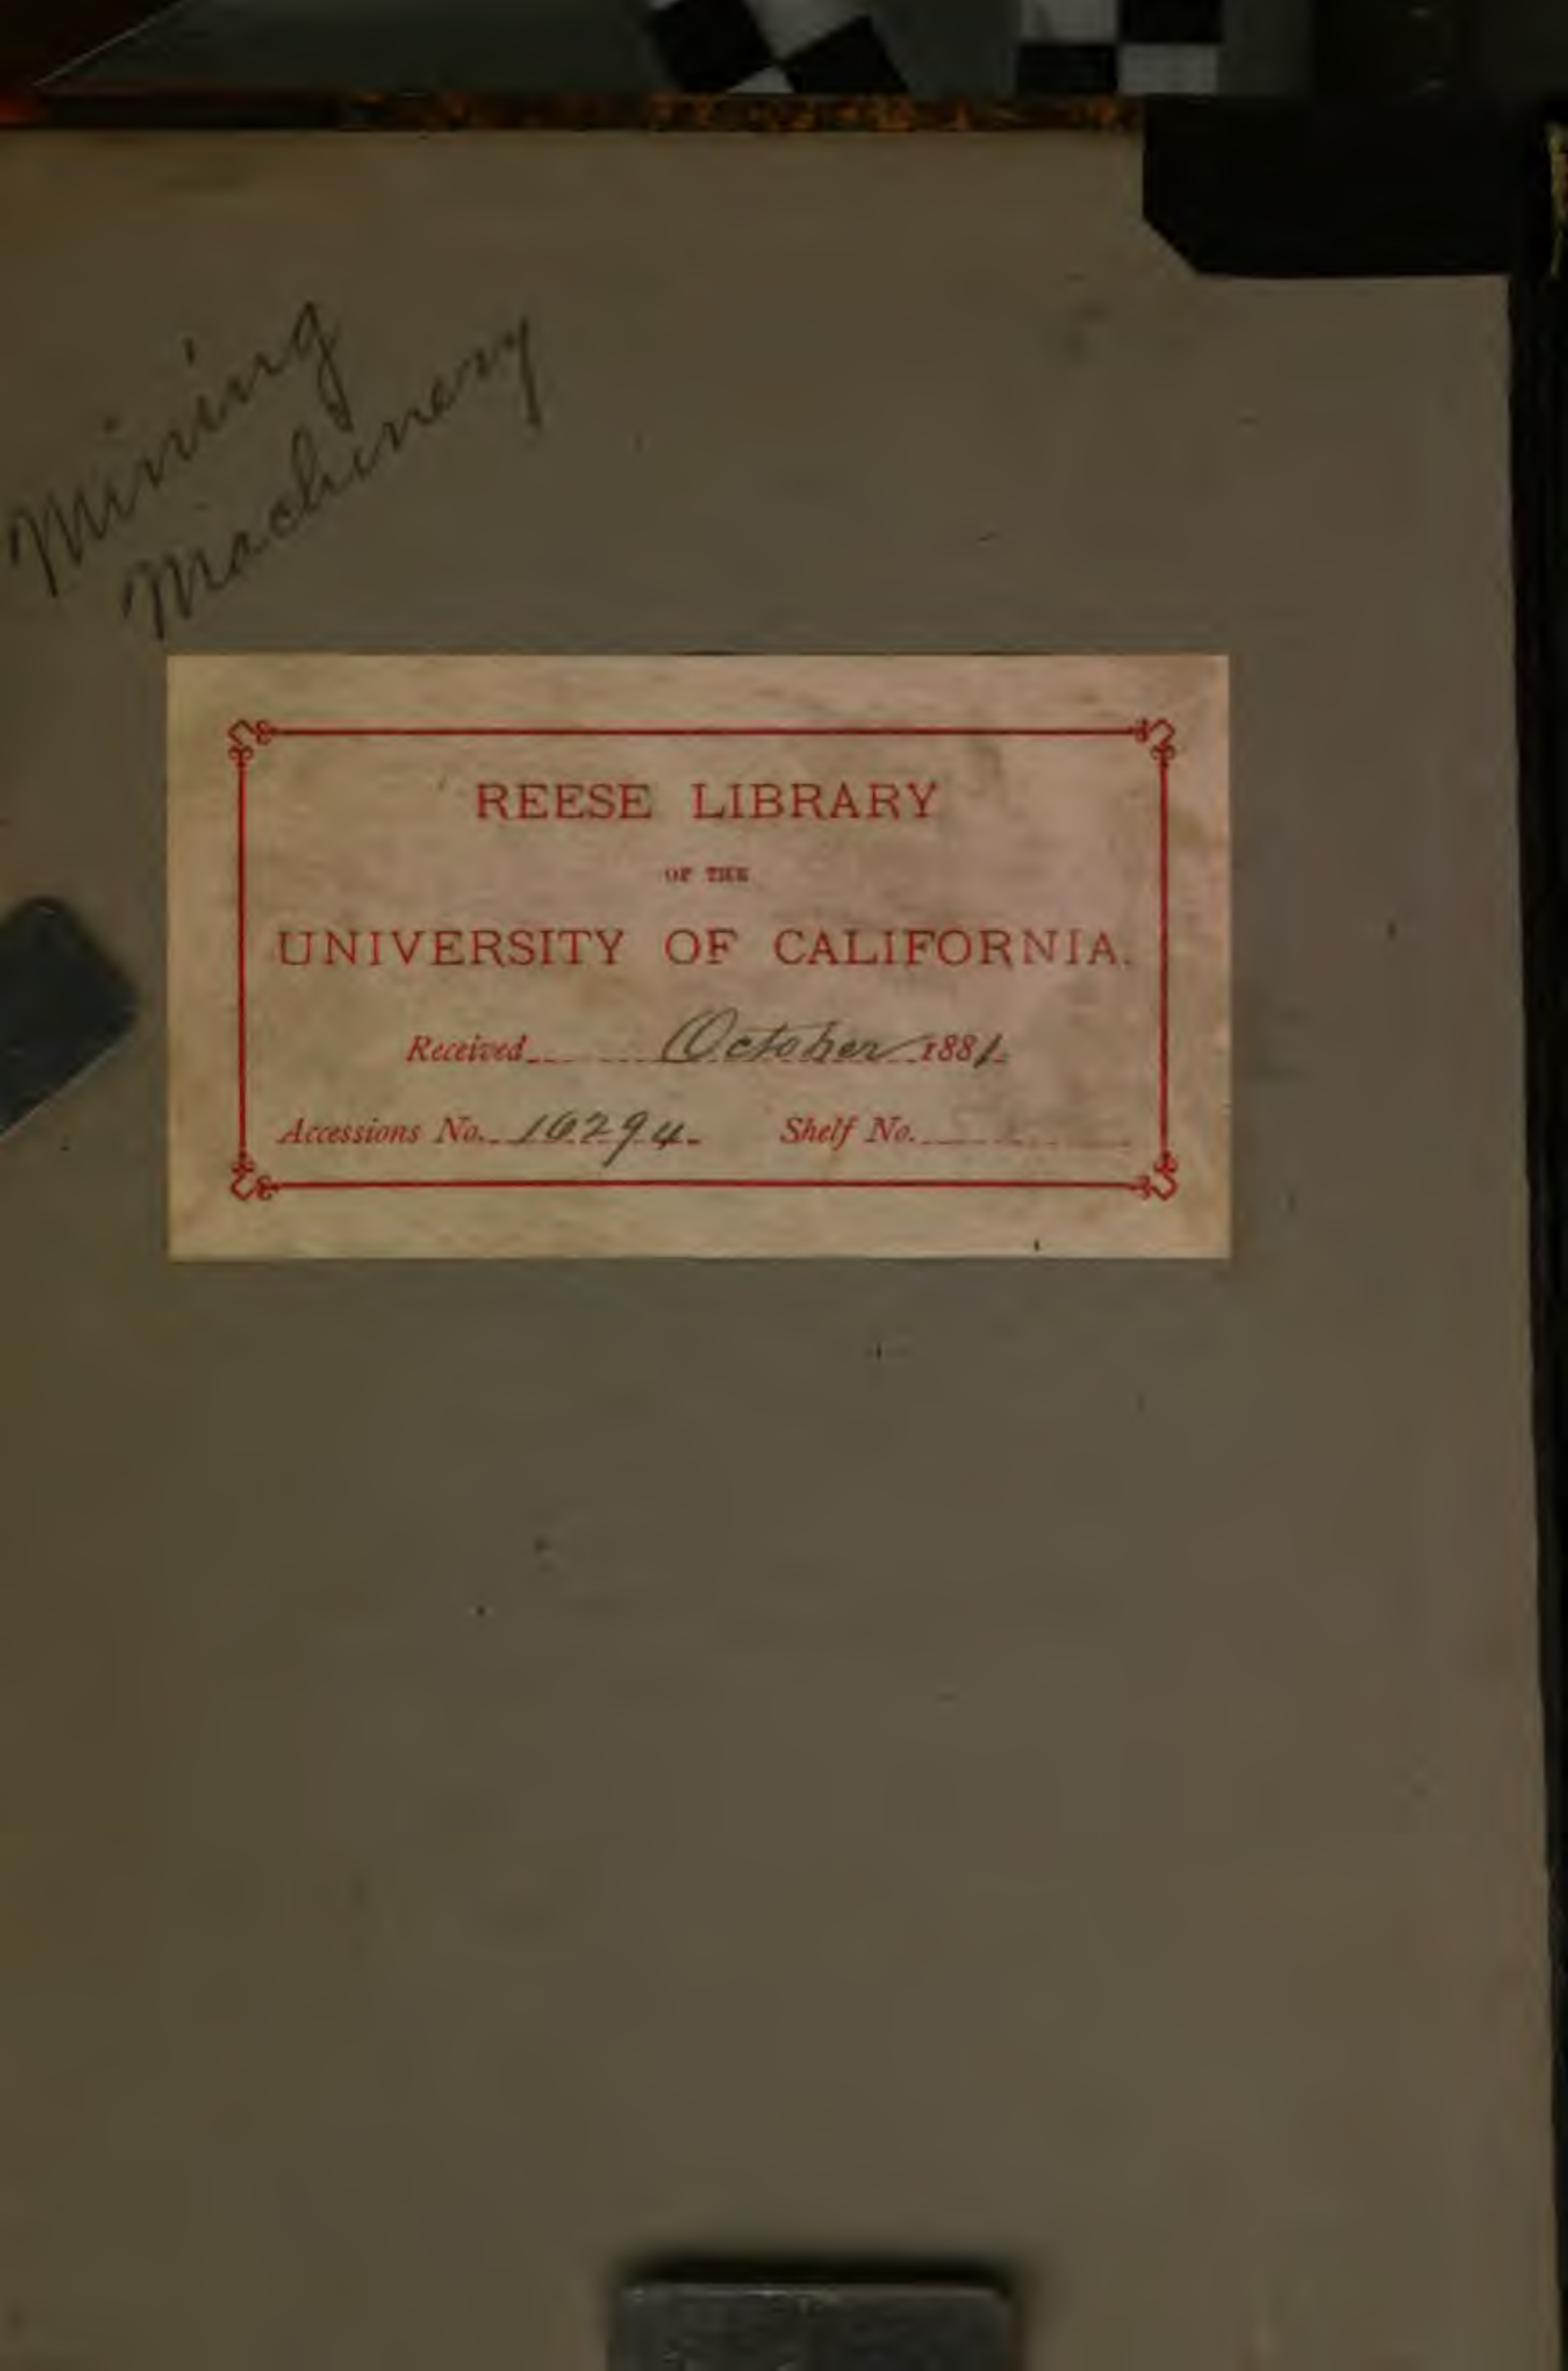 Mining
Machinery
REESE LIBRARY
OF THE
UNIVERSITY OF CALIFORNIA.
Received October 1881.
Accessions No. 16294 Shelf No.